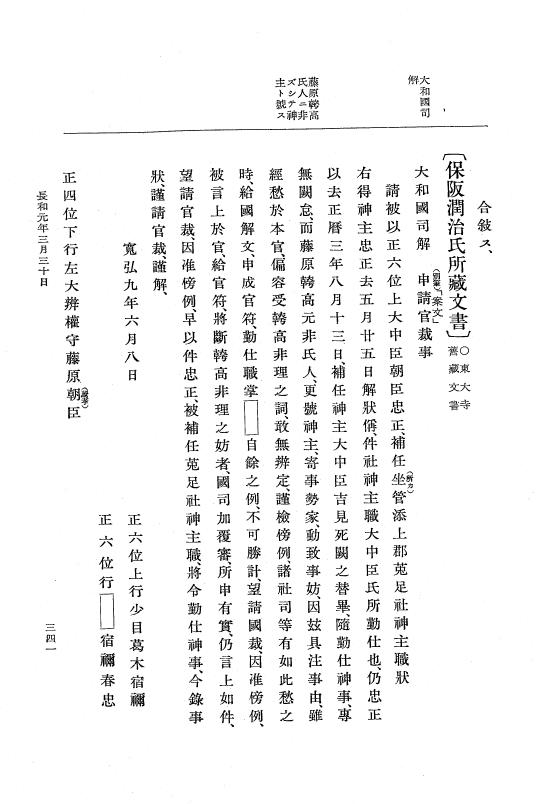 合敍ス、
大和國司解
藤原輔高
氏人ニ非
ズシテ神
主ト號ス
〔保阪潤治氏所藏文書〕○東大寺舊藏文書
大和國司解　申請官裁事
「案文」
請被以正六位上大中臣朝臣忠正、補任坐管添上郡菟足社神主職狀
(所カ)
右得神主忠正去五月廿五日解狀偁、件社神主職大中臣氏所勤仕也、仍忠正
以去正曆三年八月十三日、補任神主大中臣吉見死闕之替畢、隨勤仕神事、專
無闕怠、而藤原輔高元非氏人、更號神主、寄事勢家、動致事妨、因玆具注事由、雖
經愁於本官、偏容受輔高非理之詞、敢無辨定、謹檢傍例、諸社司等有如此愁之
時、給國解文、申成官符、勤仕職掌□自餘之例、不可勝計、望請國裁、因准傍例、
被言上於官、給官符、將斷輔高非理之妨者、國司加覆審、所申有實、仍言上如件、
望請官裁因准傍例、早以件忠正、被補任菟足社神主職、將令勤仕神事、今錄事
狀、謹請官裁、謹解、
寬弘九年六月八日
正六位上行少目葛木宿禰
正六位行□宿禰春忠
正四位下行左大辨權守藤原朝臣
長和元年三月三十日
三四一